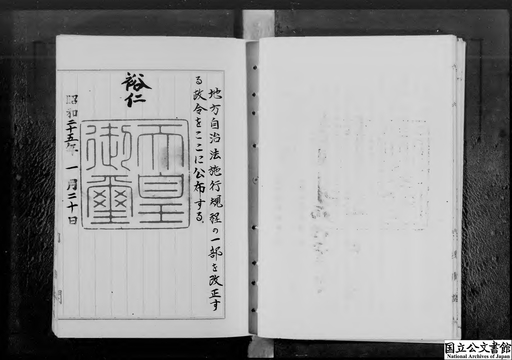 地方自治法施行規程の一部を改正す
る政令をここに公布する。
裕仁
天皇
御璽
昭和二十五年 一月二十日
国立公文書館
National Archives of Japan